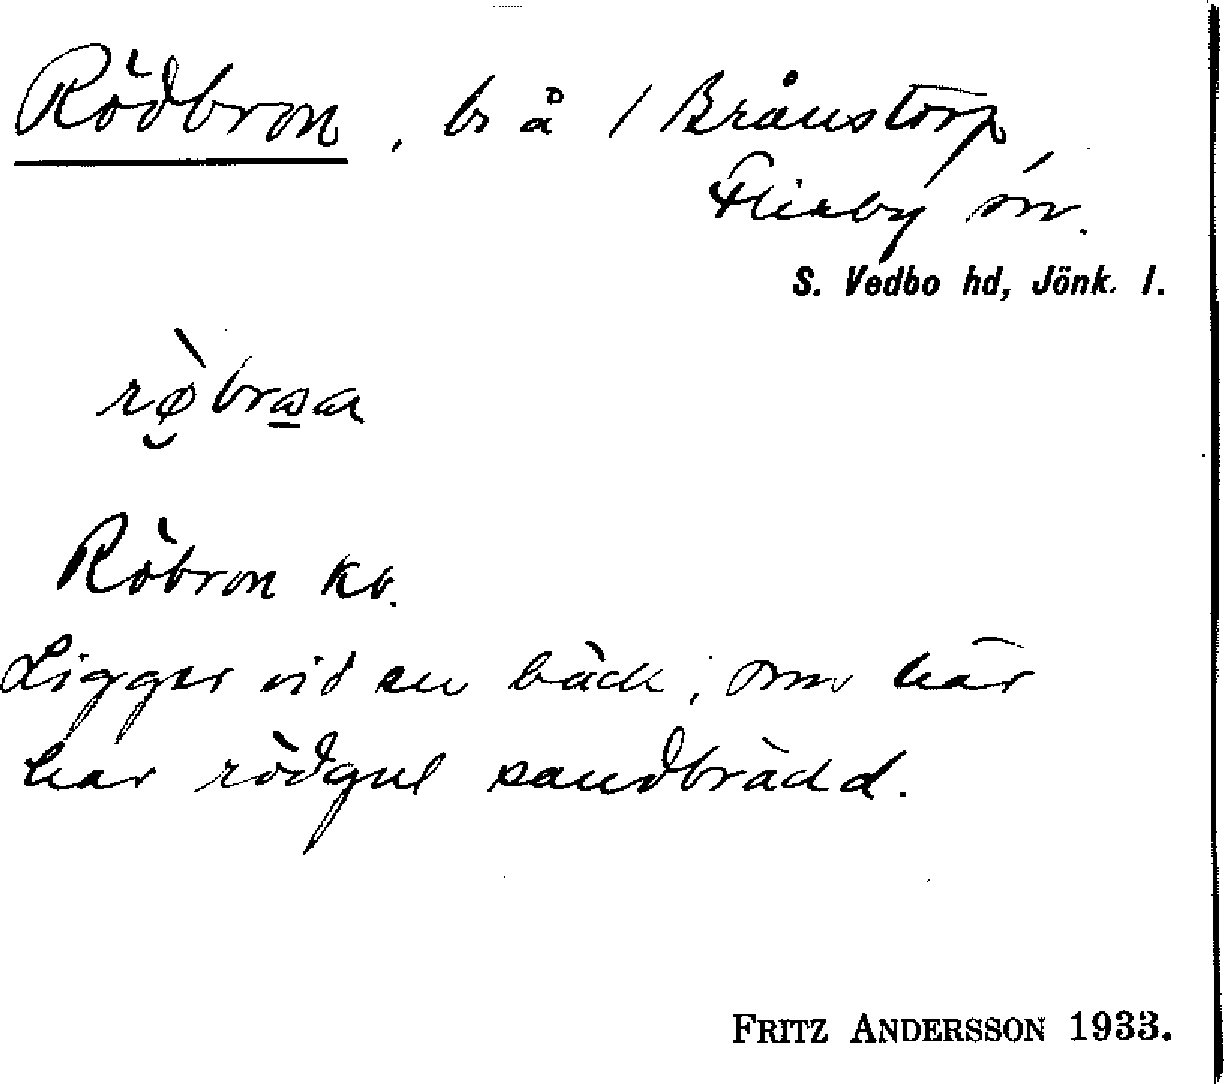 Rödbron, ls å / Brånstorp,
Flisby sn.
S. Vedbo hd, Jönk. l.
Röbron kb.
Ligger vid en bäck, som här
har rödgul sandbrädd.
FRITZ ANDERSSON 1933.